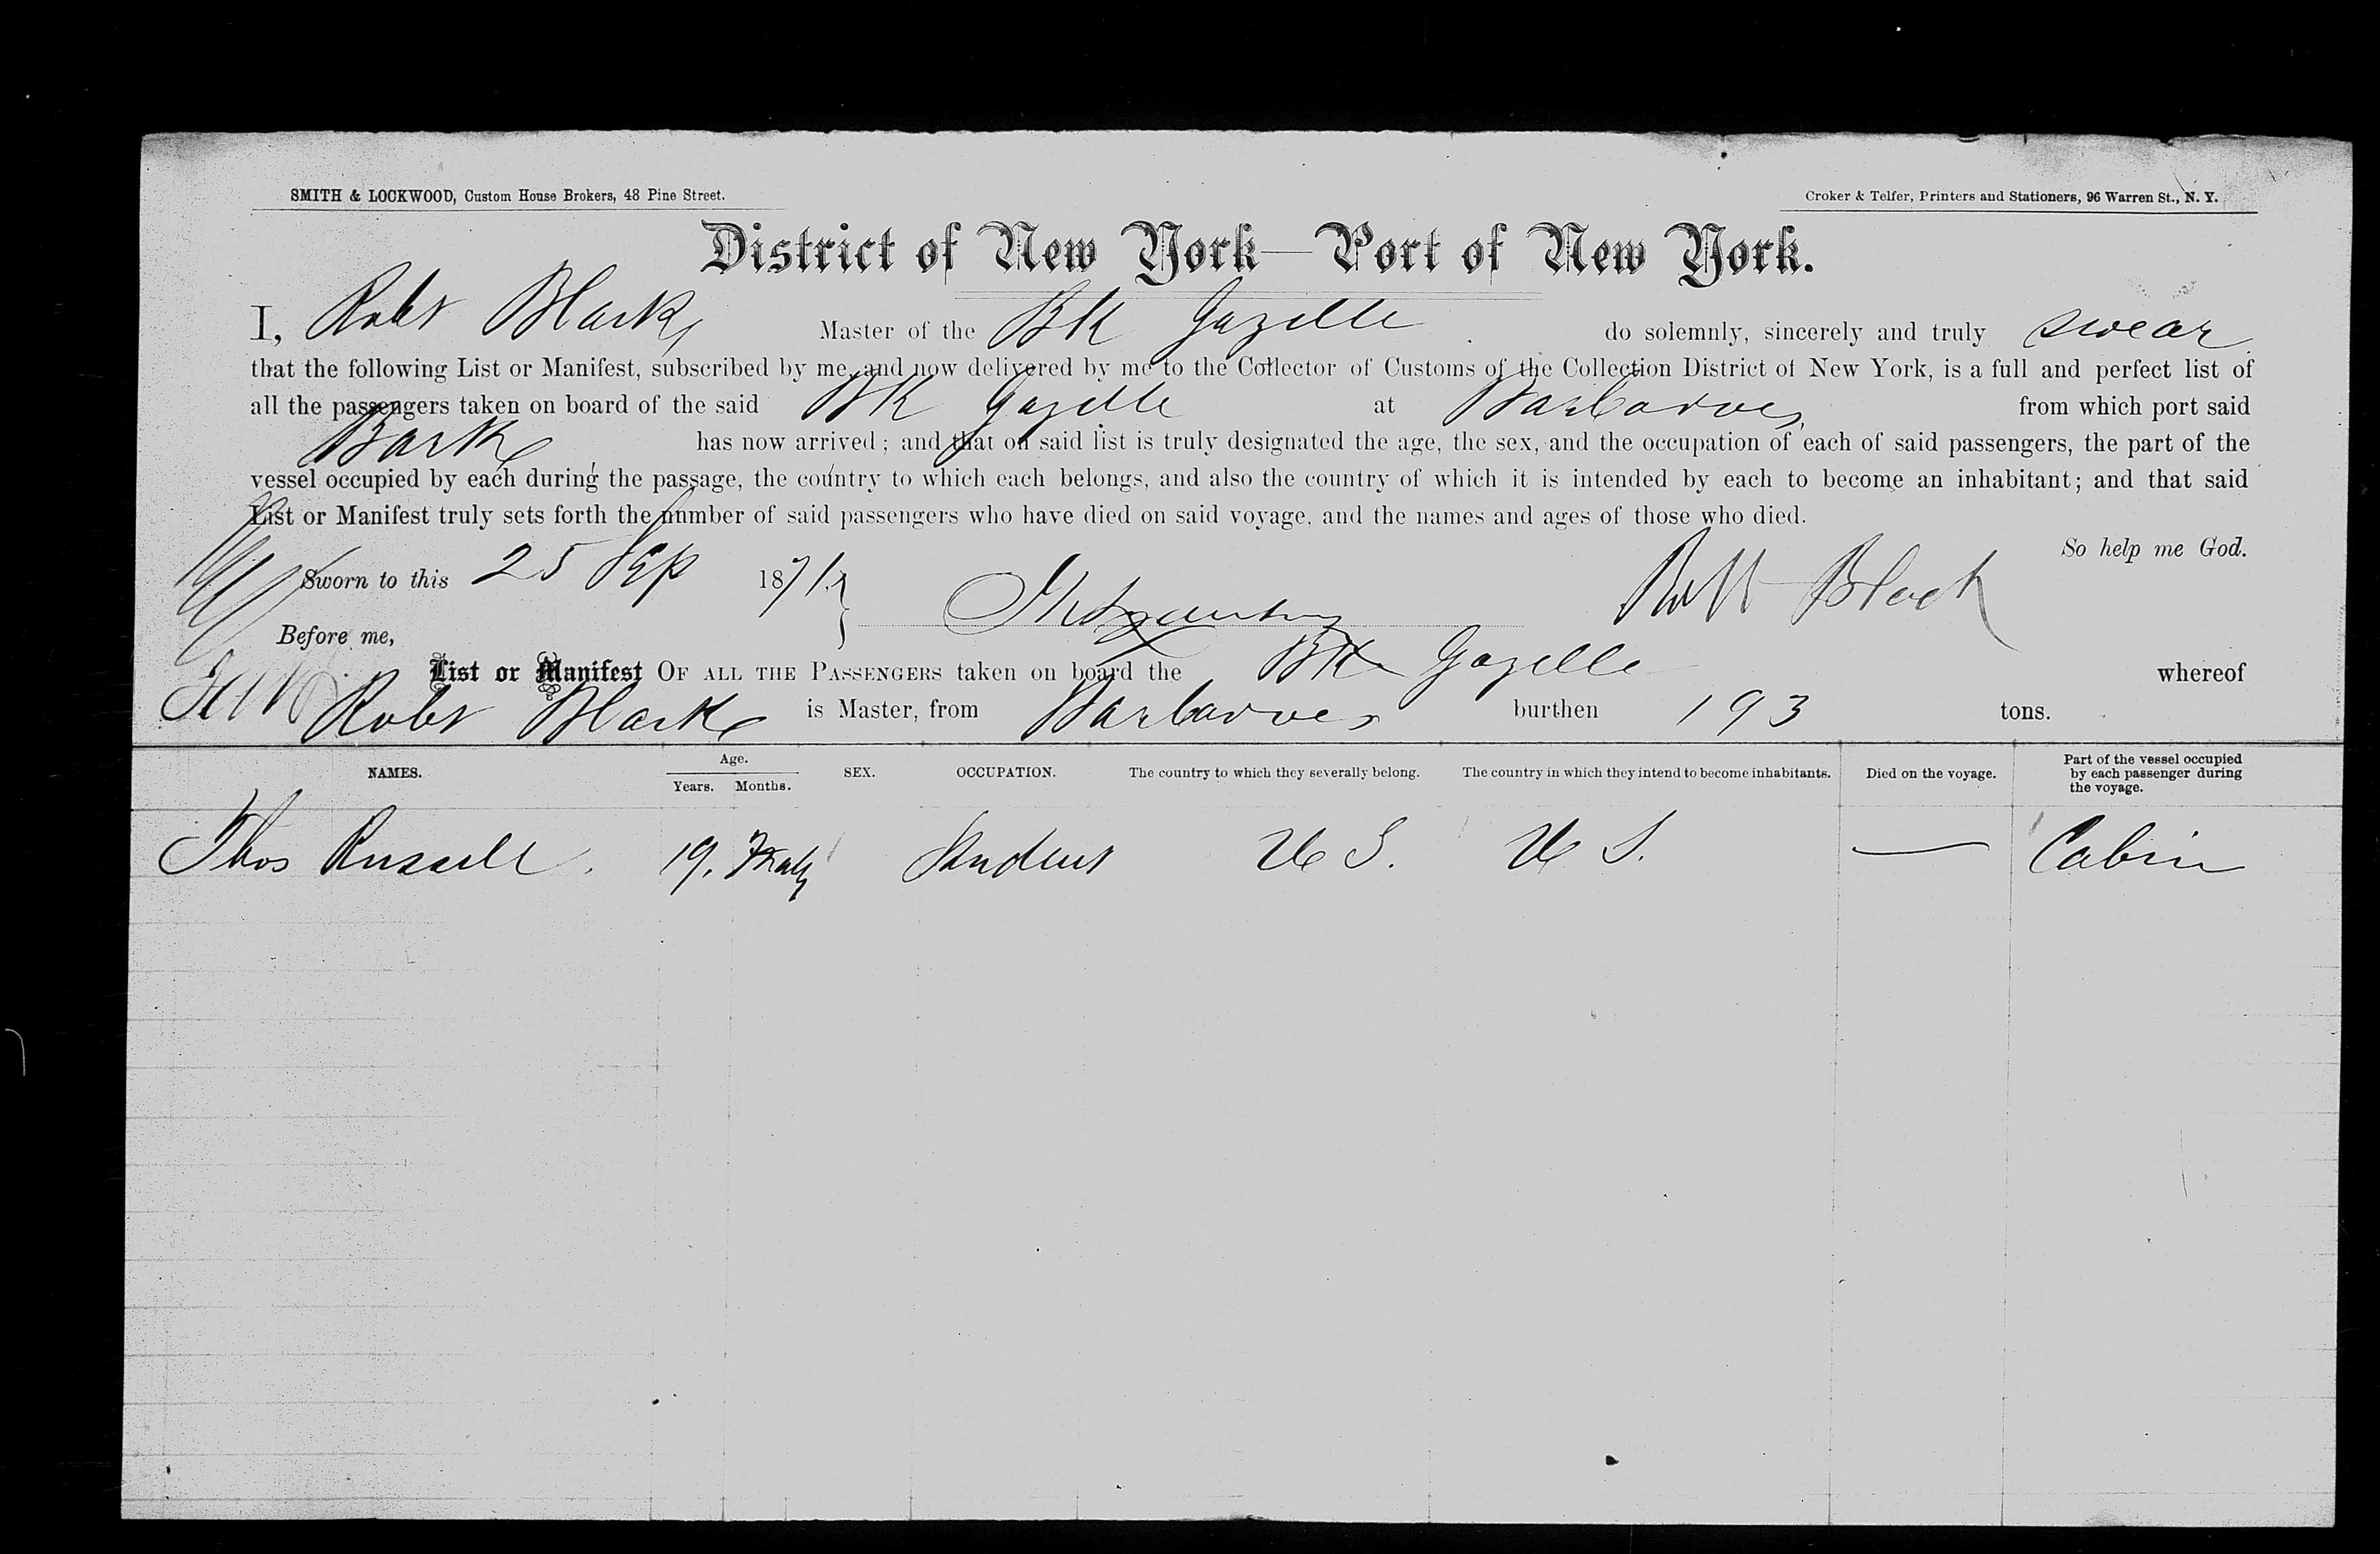 SMITH & LOCKWOOD, Custom House Brokers, 48 Pine Street.
Croker & Telfer, Printers and Stationers, 96 Warren St., N. Y.
District of New York—Port of New York.
I, Robt Black Master of the Bk Gazelle do solemnly, sincerely and truly swear
that the following List or Manifest, subscribed by me, and now delivered by me to the Collector of Customs of the Collection District of New York, is a full and perfect list of
all the passengers taken on board of the said Bk Gazelle at Barbadoes from which port said
Bark has now arrived; and that on said list is truly designated the age, the sex, and the occupation of each of said passengers, the part of the
vessel occupied by each during the passage, the country to which each belongs, and also the country of which it is intended by each to become an inhabitant; and that said
List or Manifest truly sets forth the number of said passengers who have died on said voyage, and the names and ages of those who died.
So help me God.
Sworn to this 25 Sep 1871
Robt Black
Before me,
List or Manifest OF ALL THE PASSENGERS taken on board the Bk Gazelle whereof
Robt Black is Master, from Barbadoes burthen 193 tons.
NAMES. Age. Years. Months. SEX. OCCUPATION. The country to which they severally belong. The country in which they intend to become inhabitants. Died on the voyage. Part of the vessel occupied by each passenger during the voyage.
Thos Russell. 19. Student U S. U S. — Cabin